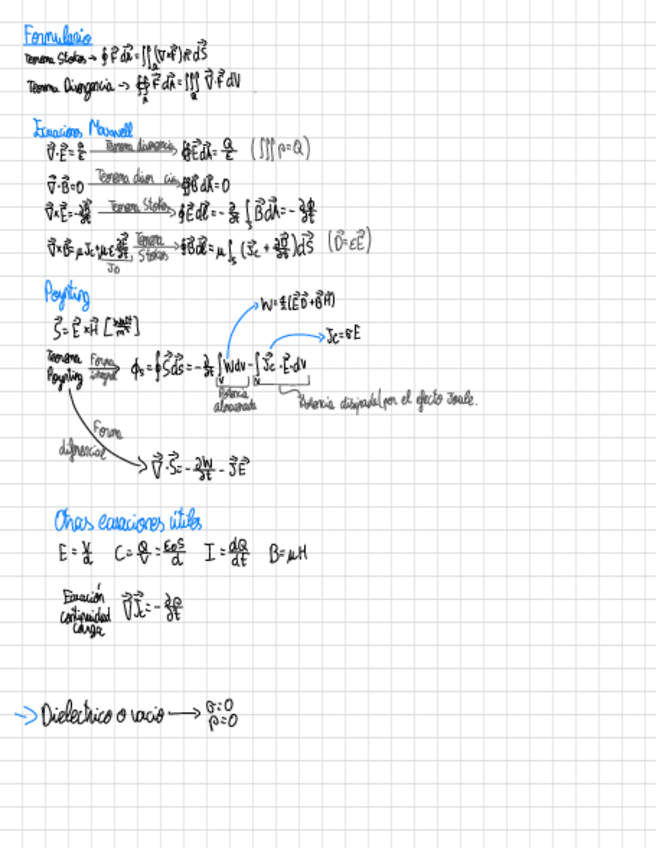 Formulario
Teorema Stokes → ∮F⃗ dλ⃗ = ∬(∇×F⃗) n⃗ dS⃗
Teorema Divergencia → ∯F⃗ dA⃗ = ∭ ∇⃗·F⃗ dV
Ecuaciones Maxwell
∇⃗·E⃗ = ρ/ε Teorema divergencia → ∯E⃗ dA⃗ = Q/ε (∭ρ=Q)
∇⃗·B⃗=0 Teorema → ∯B⃗ dA⃗=0
∇⃗×E⃗=-∂B⃗/∂t Teorema Stokes → ∮E⃗ dl⃗ = -∂/∂t ∫s B⃗ dA⃗ = -∂ϕ/∂t
∇⃗×B⃗=μJc+με ∂E⃗/∂t Teorema Stokes → ∮B⃗ dl⃗ = μ∫s (J⃗c + ∂D⃗/∂t)dS⃗ (D⃗=εE⃗)
J_D
Poynting
W=½(E⃗D⃗+B⃗H⃗)
S⃗=E⃗×H⃗ [watt/m²]
Jc=σE
Teorema Poynting Forma integral → ϕs=∮S⃗ds⃗=-∂/∂t ∫v Wdv - ∫v J⃗c·E⃗·dv
Potencia almacenada
Potencia disipada por el efecto Joule.
Forma diferencial
∇⃗·S⃗=-∂W/∂t - J⃗E⃗
Otras ecuaciones útiles
E=V/d C=Q/V=ε₀S/d I=dQ/dt B=μH
Ecuación continuidad carga ∇⃗J⃗c=-∂ρ/∂t
→ Dielectrico o vacio → σ=0
ρ=0